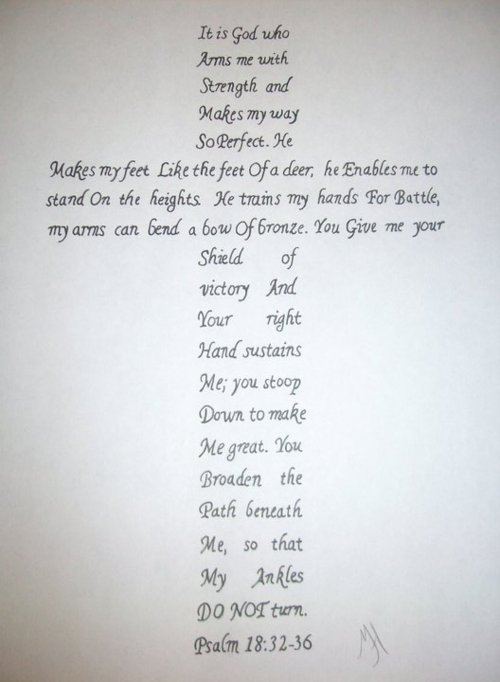 It is God who
Arms me with
Strength and
Makes my way
So Perfect. He
Makes my feet Like the feet Of a deer, he Enables me to
stand On the heights. He trains my hands For Battle,
my arms can bend a bow Of bronze. You Give me your
Shield of
victory And
Your right
Hand sustains
Me; you stoop
Down to make
Me great. You
Broaden the
Path beneath
Me, so that
My Ankles
DO NOT turn.
Psalm 18:32-36